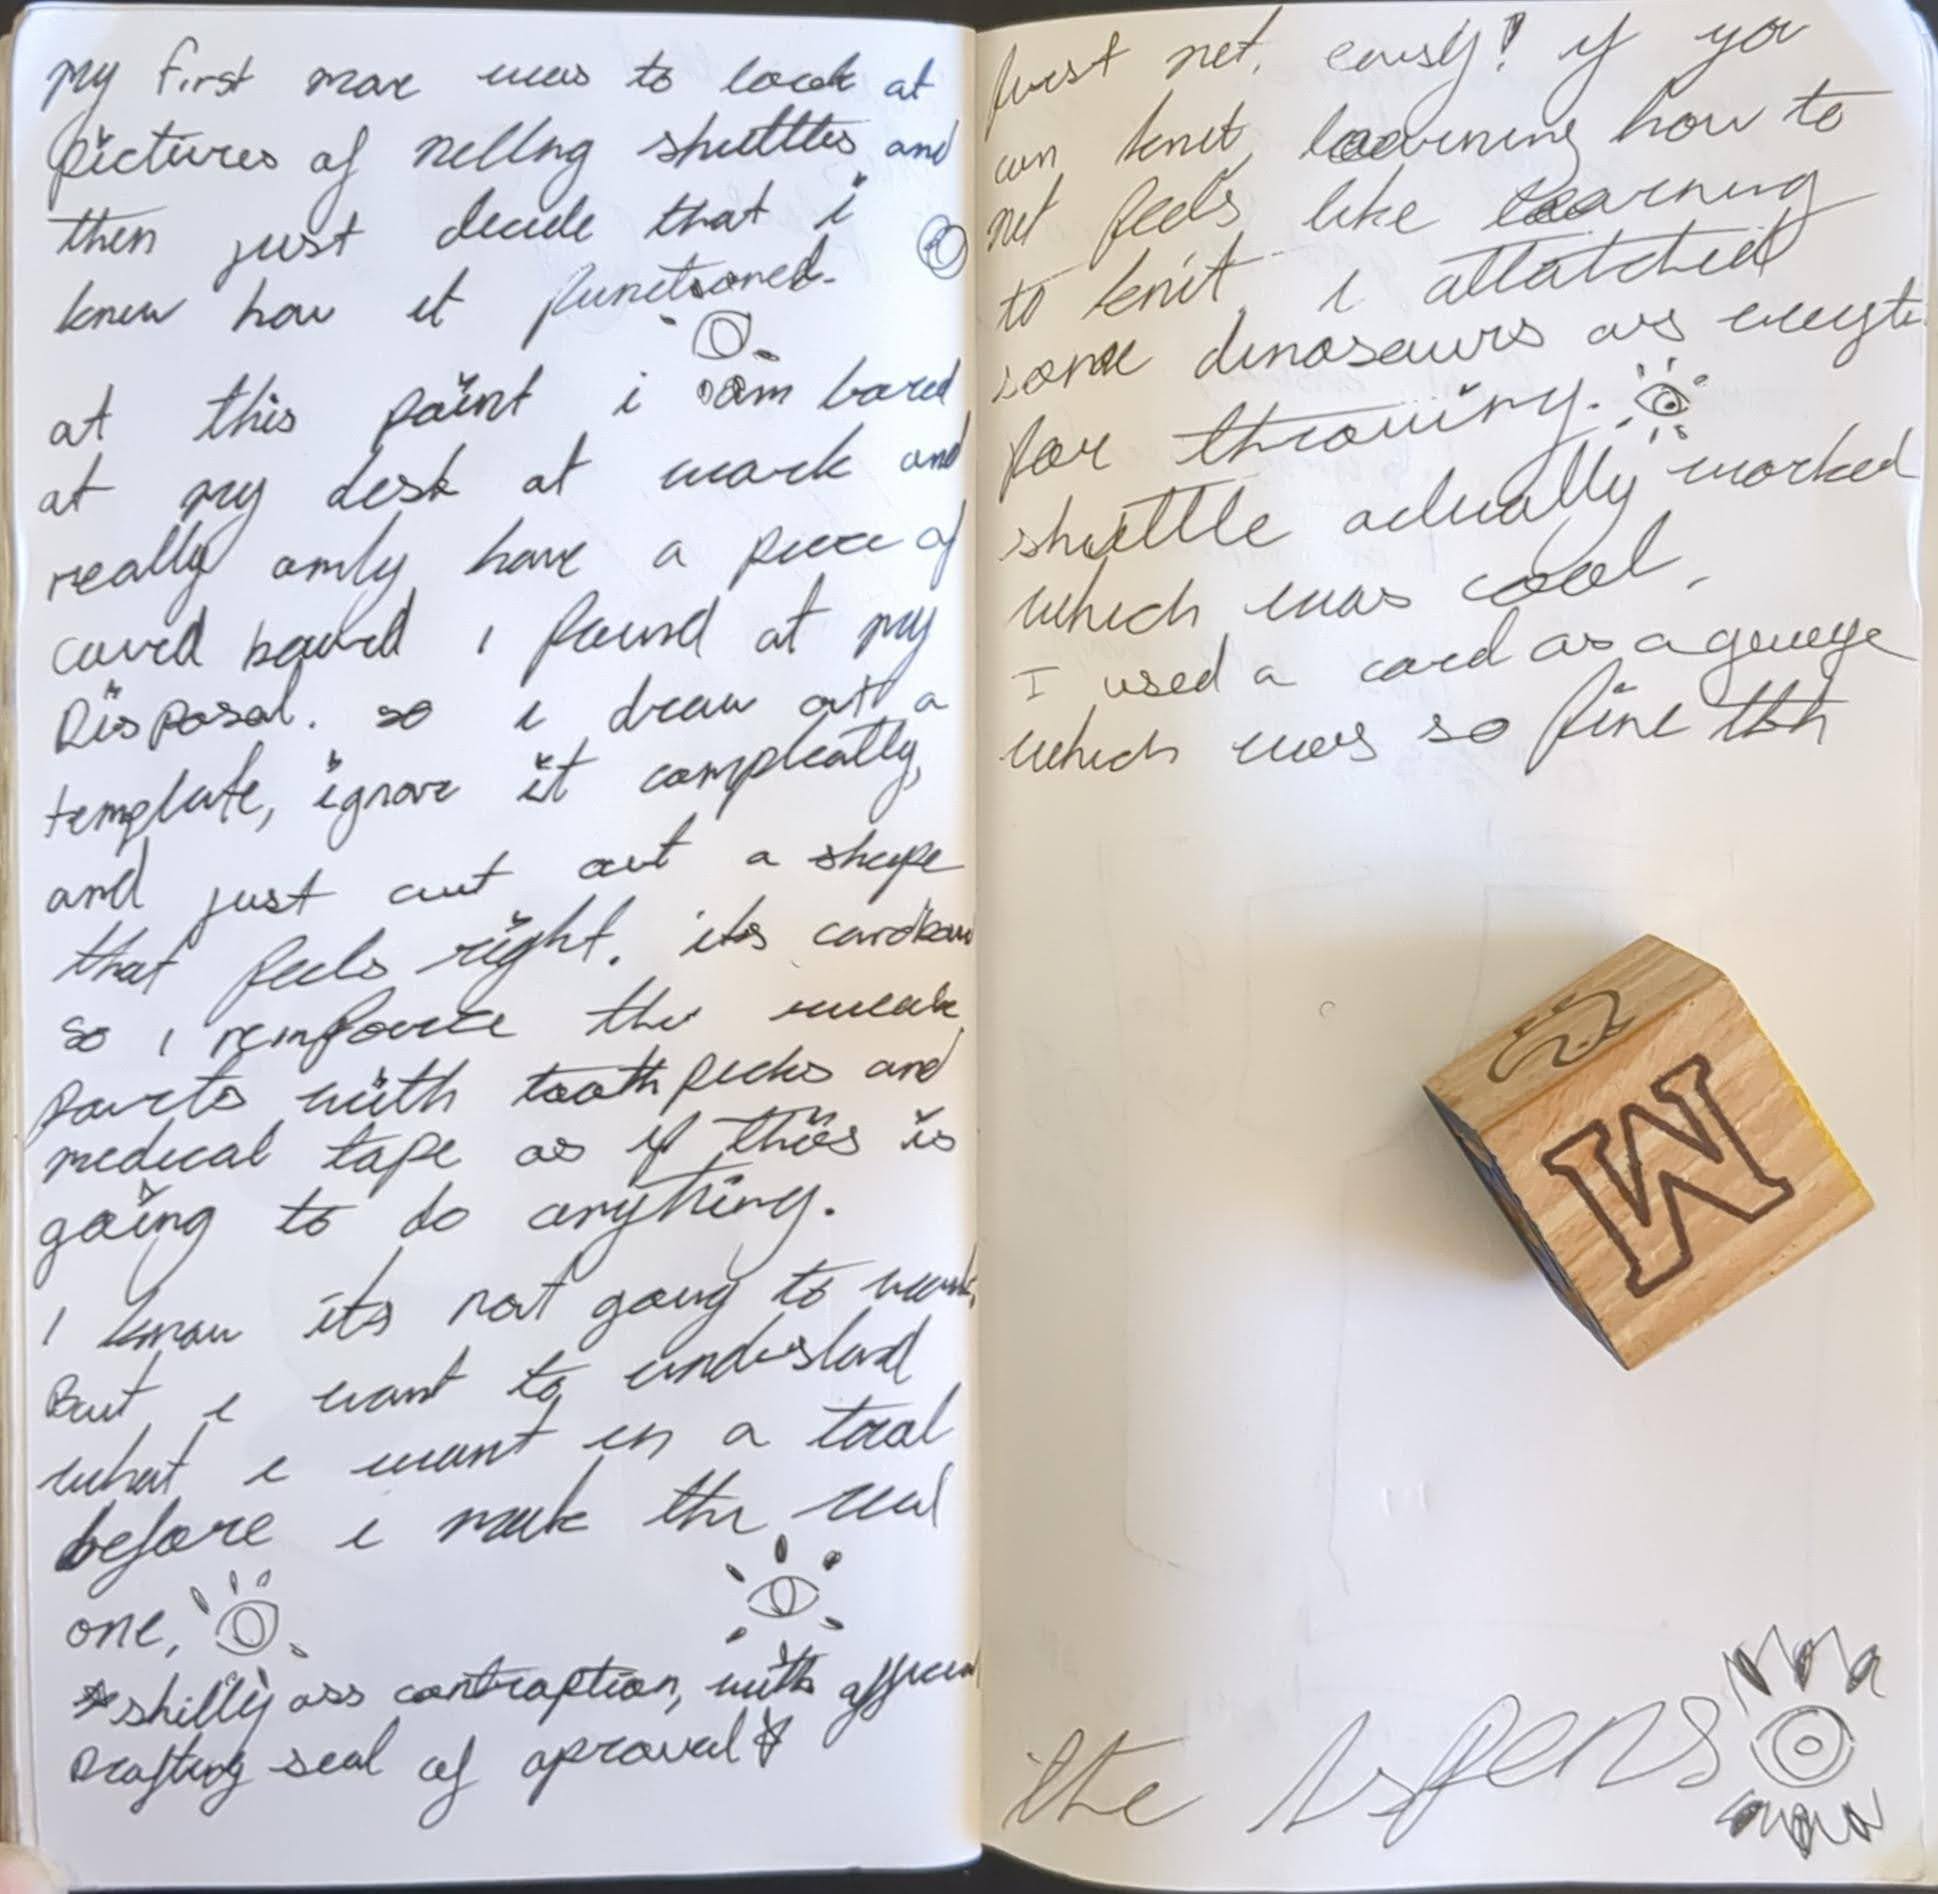 my first move was to look at
pictures of netting shuttles and
then just decide that i
knew how it functioned.
at this point i am bored
at my desk at work and
really only have a piece of
card board i found at my
Disposal. so i draw out a
template, ignore it compleatly,
and just cut out a shape
that feels right. its cardboard
so i reinforce the weak
parts with tooth picks and
medical tape as if this is
going to do anything.
I know its not going to work,
But i want to understand
what i want in a tool
before i make the real
one,
*shitty ass contraption, with offical
Drafting seal of aproval*
first net, easy! if you
can knit, learning how to
net feels like learning
to knit, i attatched
some dinosaurs as weights
for throwing.
shuttle actually worked
which was cool,
I used a card as a gauge
which was so fine
the
W